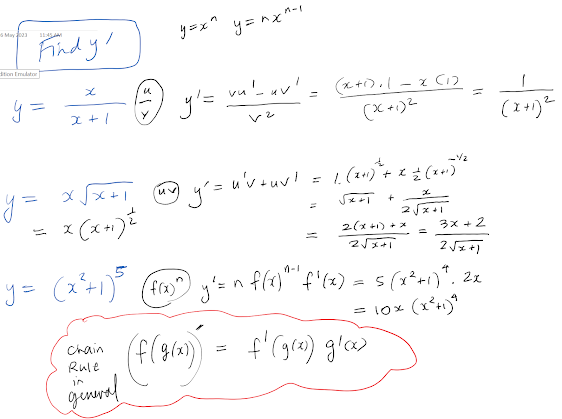 y = xⁿ y = n xⁿ⁻¹
6 May 2023 11:45 AM
Find y'
dition Emulator
y = x/(x+1) (u/v) y' = (vu' - uv')/v² = ((x+1).1 - x(1))/(x+1)² = 1/(x+1)²
y = x√(x+1) (uv) y' = u'v + uv' = 1.(x+1)^(1/2) + x 1/2 (x+1)^(-1/2)
= x(x+1)^(1/2) = √(x+1) + x/(2√(x+1))
= (2(x+1) + x)/(2√(x+1)) = (3x+2)/(2√(x+1))
y = (x²+1)⁵ (f(x)ⁿ) y' = n f(x)ⁿ⁻¹ f'(x) = 5(x²+1)⁴ . 2x
= 10x (x²+1)⁴
chain Rule in general (f(g(x)))' = f'(g(x)) g'(x)